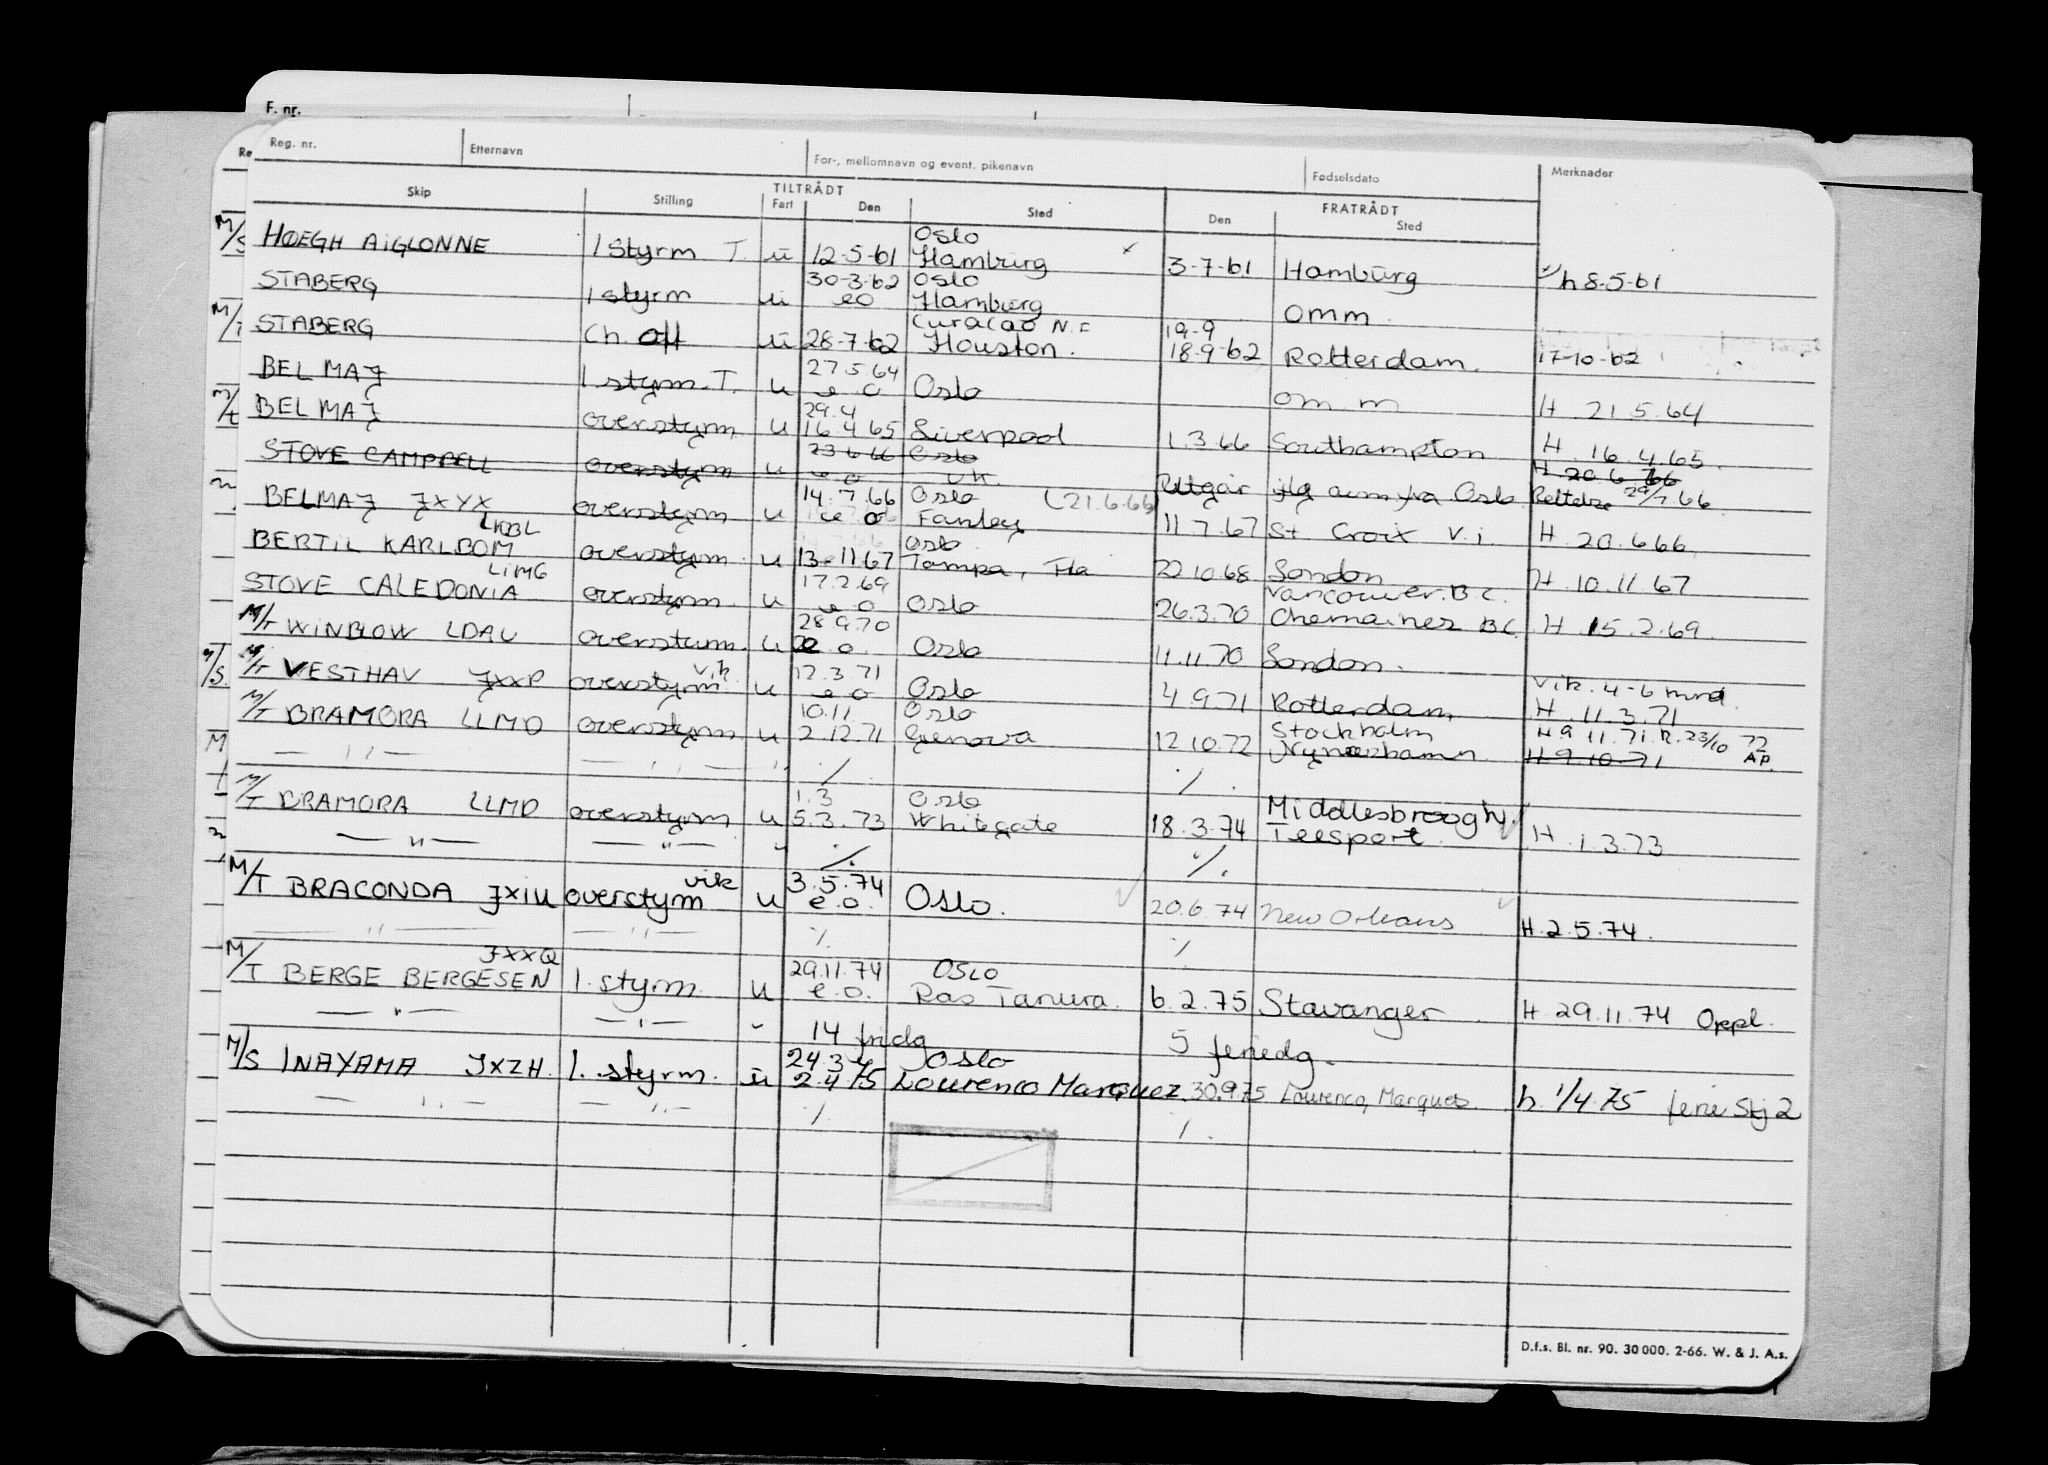 F. nr.
Re
Reg. nr. Etternavn For-, mellomnavn og event. pikenavn Fødselsdato Merknader
TILTRÅDT FRATRÅDT
Skip Stilling Fart Den Sted Den Sted
Oslo
M/S HØEGH AIGLONNE 1 styrm T. u 12-5-61 Hamburg x 3-7-61 Hamburg h 8-5-61
30-3-62 Oslo
STABERG 1 styrm u eo Hamburg omm.
Curacao N.
M/T STABERG Ch. off u 28-7-62 Houston. 19-9 18-9-62 Rotterdam. 17-10-62
27 5 64
BELMAJ 1 styrm. T. u e o Oslo om. m H 21.5.64
29.4
M/T BELMAJ overstyrm u 16.4 65 Liverpool 1.3.66 Southampton H. 16.4.65.
23 6 66 Oslo H 20.6.66
STOVE CAMPBELL overstyrm u e o UK. Utgår ifg Oslo. Rettelse 29/7.66
14.7.66 Oslo (21.6.66)
BELMAJ JXYX overstyrm u e o Fawley 11 7.67 St Croix V.i. H. 20.6.66
LKBL Oslo
BERTIL KARLBOM overstyrm. u 13-11.67 Tampa, Fla 22 10.68 London H. 10.11.67
LIMG 17.2.69 Vancouver. B.C.
STOVE CALEDONIA overstyrm. u e o Oslo 26.3.70 Chemainer BC. H. 15.2.69.
28 9.70
M/T WINBLOW LDAU overstyrm. u e. o. Oslo 11.11 70 London.
vik 12.3.71 Vik. 4-6 mnd.
M/T VESTHAV JXXP overstyrm u e o Oslo 4.9.71 Rotterdam H. 11.3.71
10.11 Oslo Stockholm H 9 11.71. R. 23/10 72
M/T BRAMORA LLMD overstyrm u 2.12.71 Genova 12.10.72 Nynäshamn. H 9-10-71 AP.
— " — — " — " ./. ./.
1.3 Oslo Middlesbroogh
M/T BRAMORA LLMD overstyrm u 5.3.73 Whitegate 18.3.74 Teesport. H. 1.3.73
— " — — " — " ./. ./.
vik 3.5.74
M/T BRACONDA JXIU overstyrm u e.o. Oslo. 20.6.74 New Orleans H.2.5.74.
— " — — " — ./. ./.
JXXQ 29.11.74 OSLO
M/T BERGE BERGESEN 1. styrm. u e.o. Ras Tanura. 6.2.75 Stavanger H. 29.11.74 Oppl.
— " — — " — " 14 fridg 5 feriedg.
24.3 Oslo
M/S INAYAMA JXZH. 1. styrm. u 2.4.75 Lourenco Marquez 30.9.75 Lourenco, Marques h. 1/4.75 ferie Stj 2
— " — — " — ./. ./.
D.f.s. Bl. nr. 90. 30 000. 2-66. W. & J. A.s.